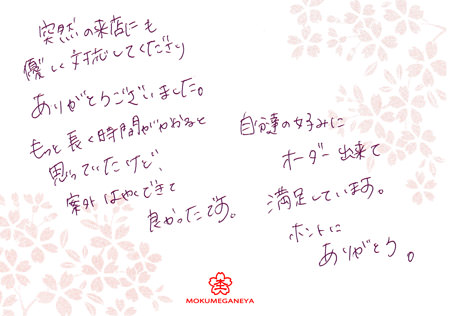 突然の来店にも
優しく対応してくださり
ありがとうございました。
もっと長く時間がかかると
思っていたけど、
案外はやくできて
良かったです。
自分達の好みに
オーダー出来て
満足しています。
ホントに
ありがとう。
MOKUMEGANEYA